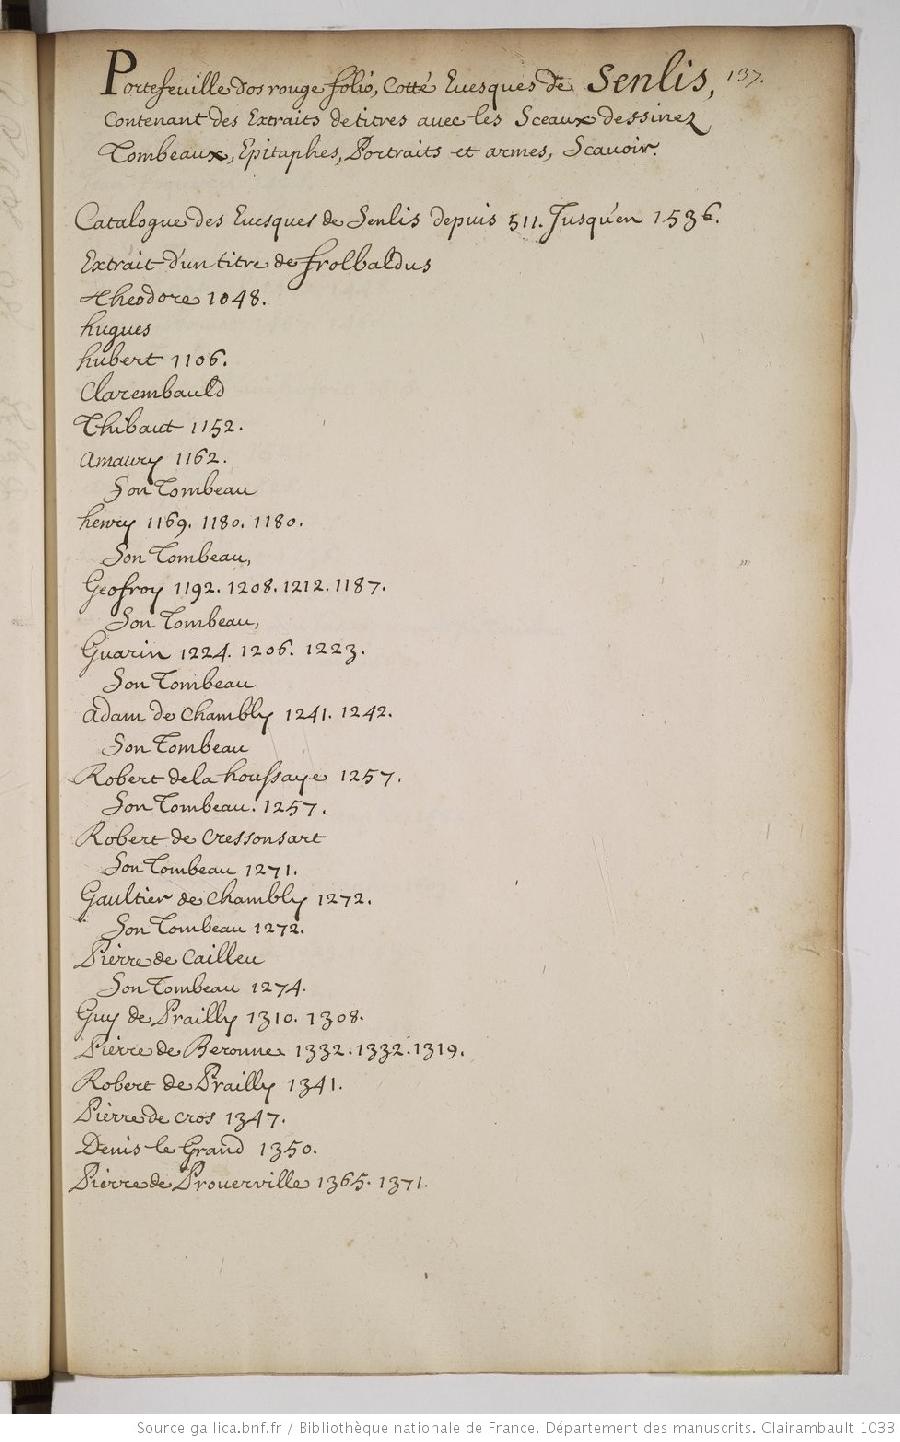 Portefeuille dos rouge folio, Cotté Euesques de Senlis, 137.
Contenant des Extraits de titres auec les Sceaux dessinez
Tombeaux, Epitaphes, Portraits et armes, Scauoir.
Catalogue des Euesques de Senlis depuis 511. Jusqu'en 1536.
Extrait d'un titre de frolbaldus
Theodore 1048.
hugues
hubert 1106.
Clarembauld
Thibaut 1152.
Amaury 1162.
Son Tombeau
henry 1169. 1180. 1180.
Son Tombeau,
Geofroy 1192. 1208. 1212. 1187.
Son Tombeau,
Guarin 1224. 1206. 1223.
Son Tombeau
Adam de Chambly 1241. 1242.
Son Tombeau
Robert de la houssaye 1257.
Son Tombeau. 1257.
Robert de Cressonsart
Son Tombeau 1271.
Gaultier de Chambly 1272.
Son Tombeau 1272.
Pierre de Cailleu
Son Tombeau 1274.
Guy de Prailly 1310. 1308.
Pierre de Beronne 1332. 1332. 1319.
Robert de Prailly 1341.
Pierre de Cros 1347.
Denis le Grand 1350.
Pierre de Prouerville 1365. 1371.
Source gallica.bnf.fr / Bibliothèque nationale de France. Département des manuscrits. Clairambault 1033